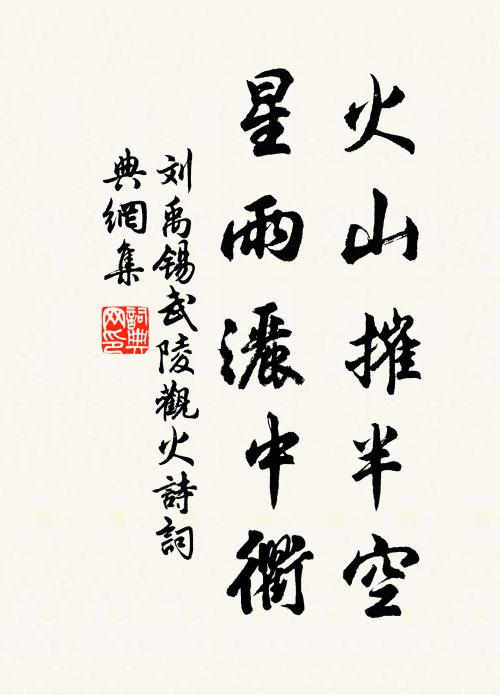 火山摧半空
星雨灑中衢
刘禹锡武陵觀火詩詞
典網集
詞典
网印